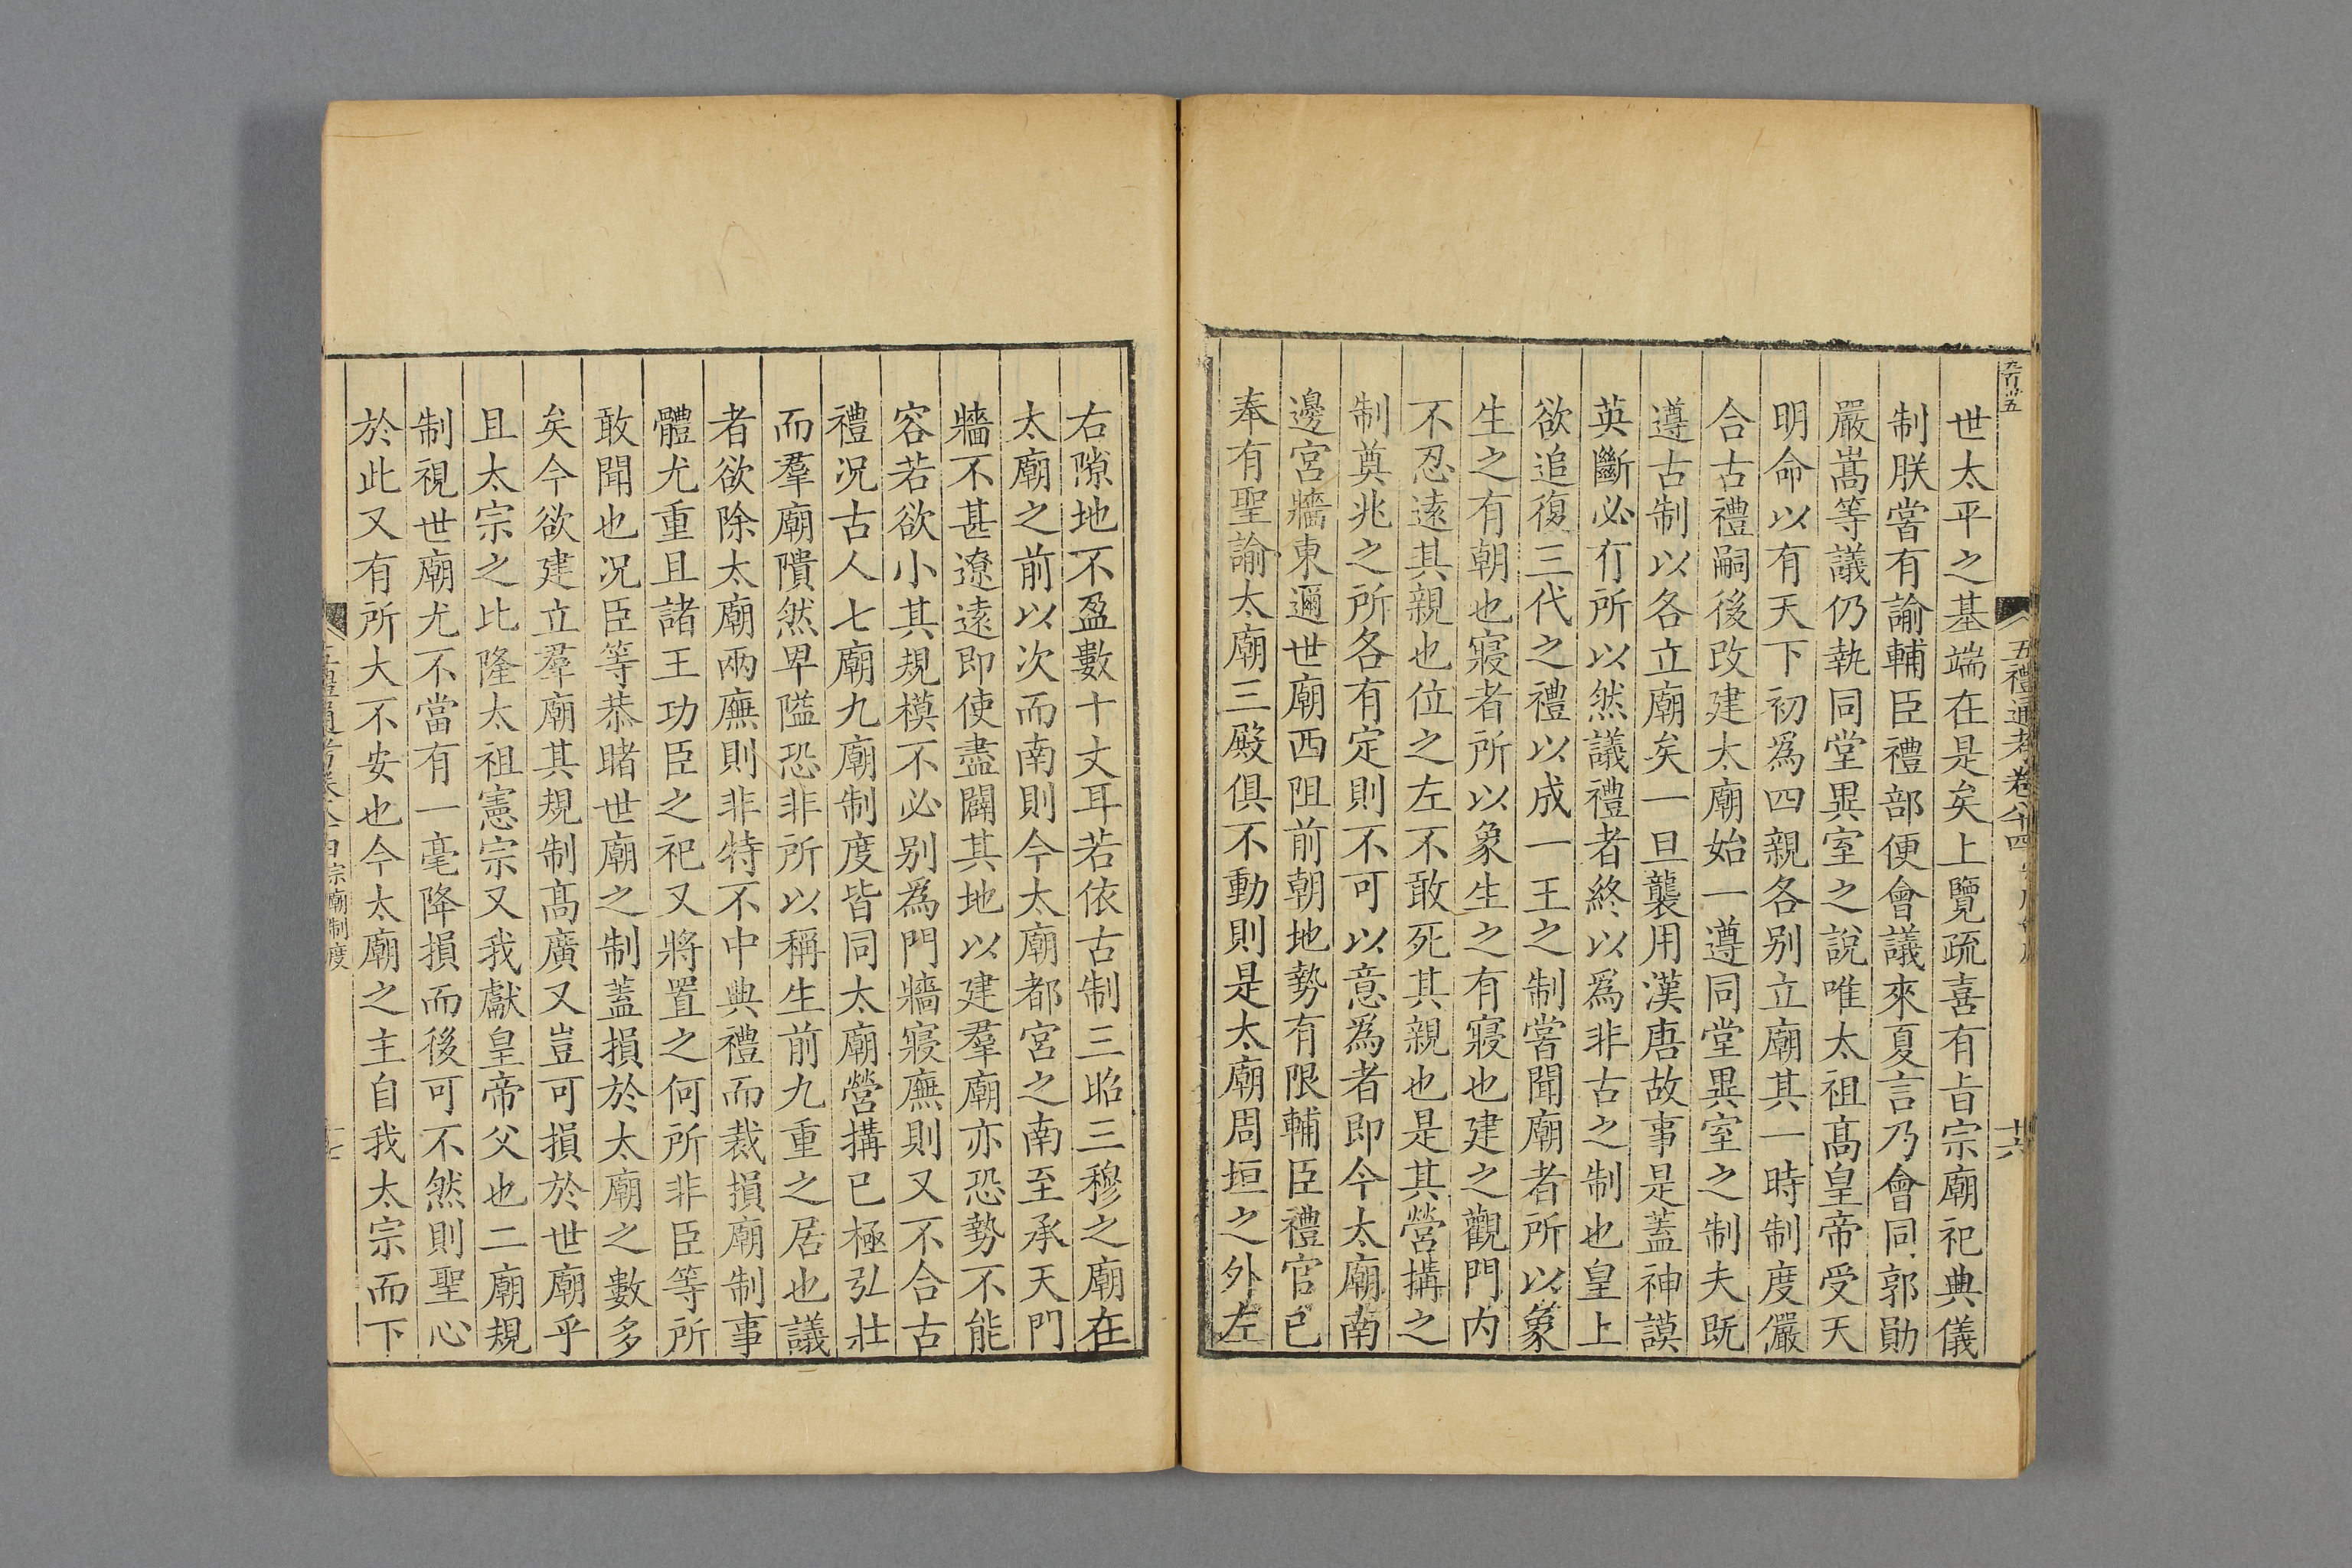 五禮通考卷八十四
十六
世太平之基端在是矣上覽疏喜有㫖宗廟祀典儀
制朕嘗有諭輔臣禮部便會議來夏言乃會同郭勛
嚴嵩等議仍執同堂異室之說唯太祖高皇帝受天
明命以有天下初爲四親各别立廟其一時制度儼
合古禮嗣後改建太廟始一遵同堂異室之制夫既
遵古制以各立廟矣一旦襲用漢唐故事是蓋神謨
英斷必有所以然議禮者終以爲非古之制也皇上
欲追復三代之禮以成一王之制嘗聞廟者所以象
生之有朝也寢者所以象生之有寢也建之觀門内
不忍遠其親也位之左不敢死其親也是其營搆之
制奠兆之所各有定則不可以意爲者即今太廟南
邊宮牆東邇世廟西阻前朝地勢有限輔臣禮官已
奉有聖諭太廟三殿俱不動則是太廟周垣之外左
右隙地不盈數十丈耳若依古制三昭三穆之廟在
太廟之前以次而南則今太廟都宮之南至承天門
牆不甚遼遠即使盡闢其地以建羣廟亦恐勢不能
容若欲小其規模不必别爲門牆寢廡則又不合古
禮况古人七廟九廟制度皆同太廟營搆已極弘壯
而羣廟隤然卑隘恐非所以稱生前九重之居也議
者欲除太廟兩廡則非特不中典禮而裁損廟制事
體尤重且諸王功臣之祀又將置之何所非臣等所
敢聞也况臣等恭睹世廟之制蓋損於太廟之數多
矣今欲建立羣廟其規制高廣又豈可損於世廟乎
且太宗之比隆太祖憲宗又我獻皇帝父也二廟規
制視世廟尤不當有一毫降損而後可不然則聖心
於此又有所大不安也今太廟之主自我太宗而下
宗廟制度